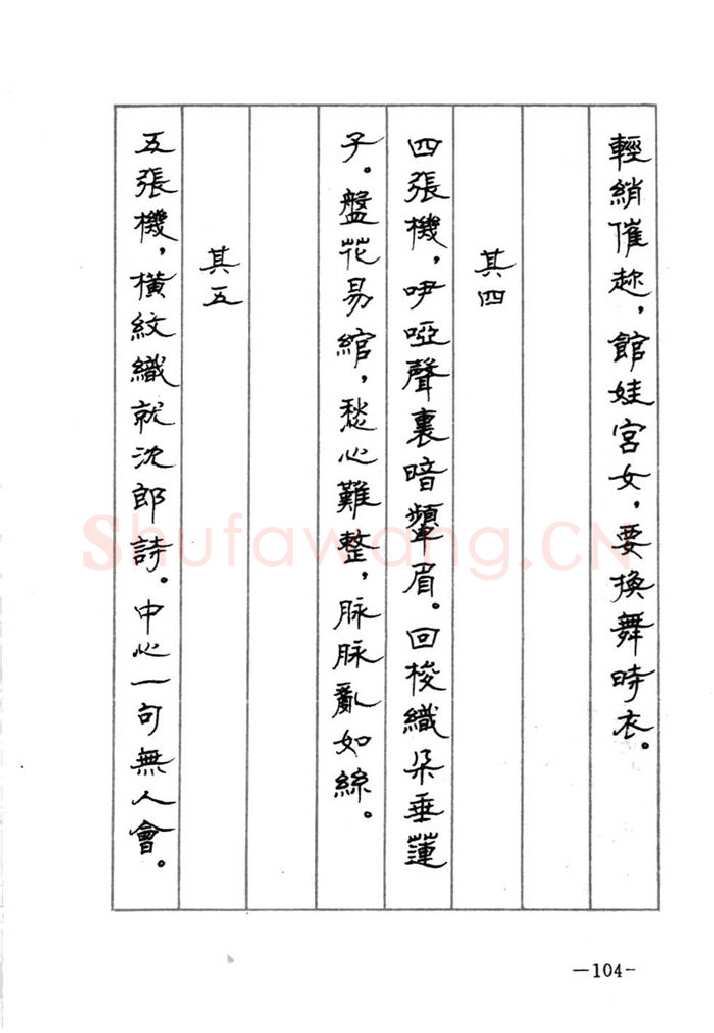 輕綃催趂，館娃宮女，要換舞時衣。
其四
四張機，咿啞聲裏暗顰眉。回梭織朵垂蓮
子。盤花易綰，愁心難整，脉脉亂如絲。
其五
五張機，橫紋織就沈郎詩。中心一句無人會。
Shufawang.CN
—104-